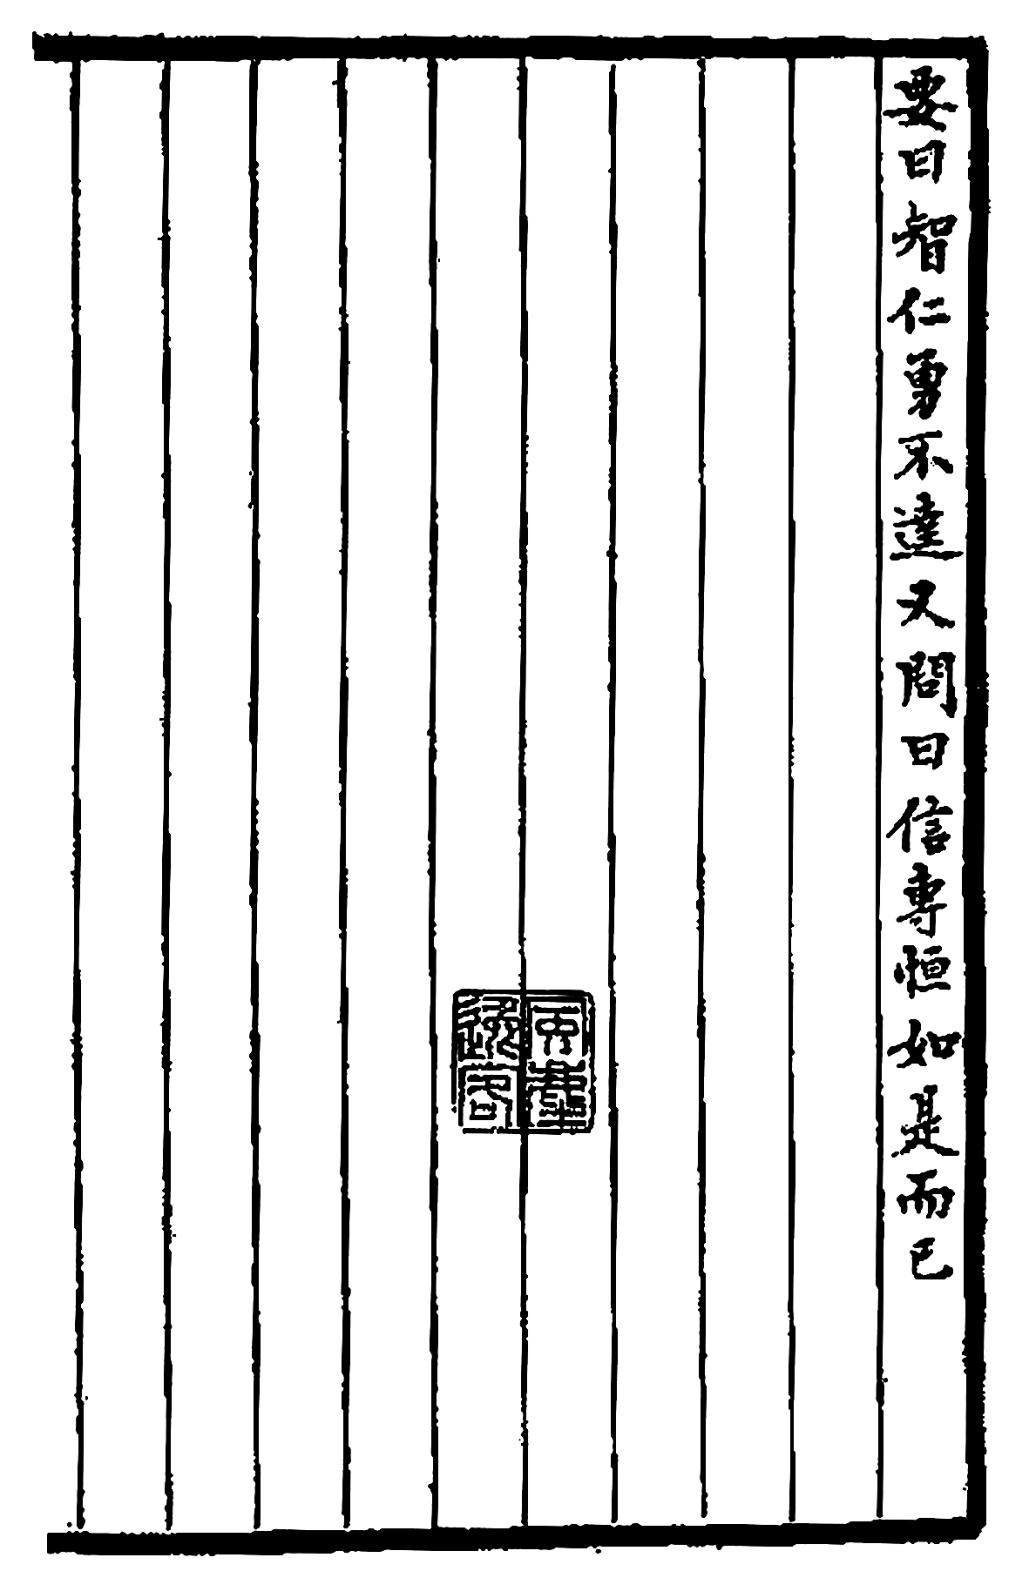 要曰智仁勇不達又問曰信專恒如是而已